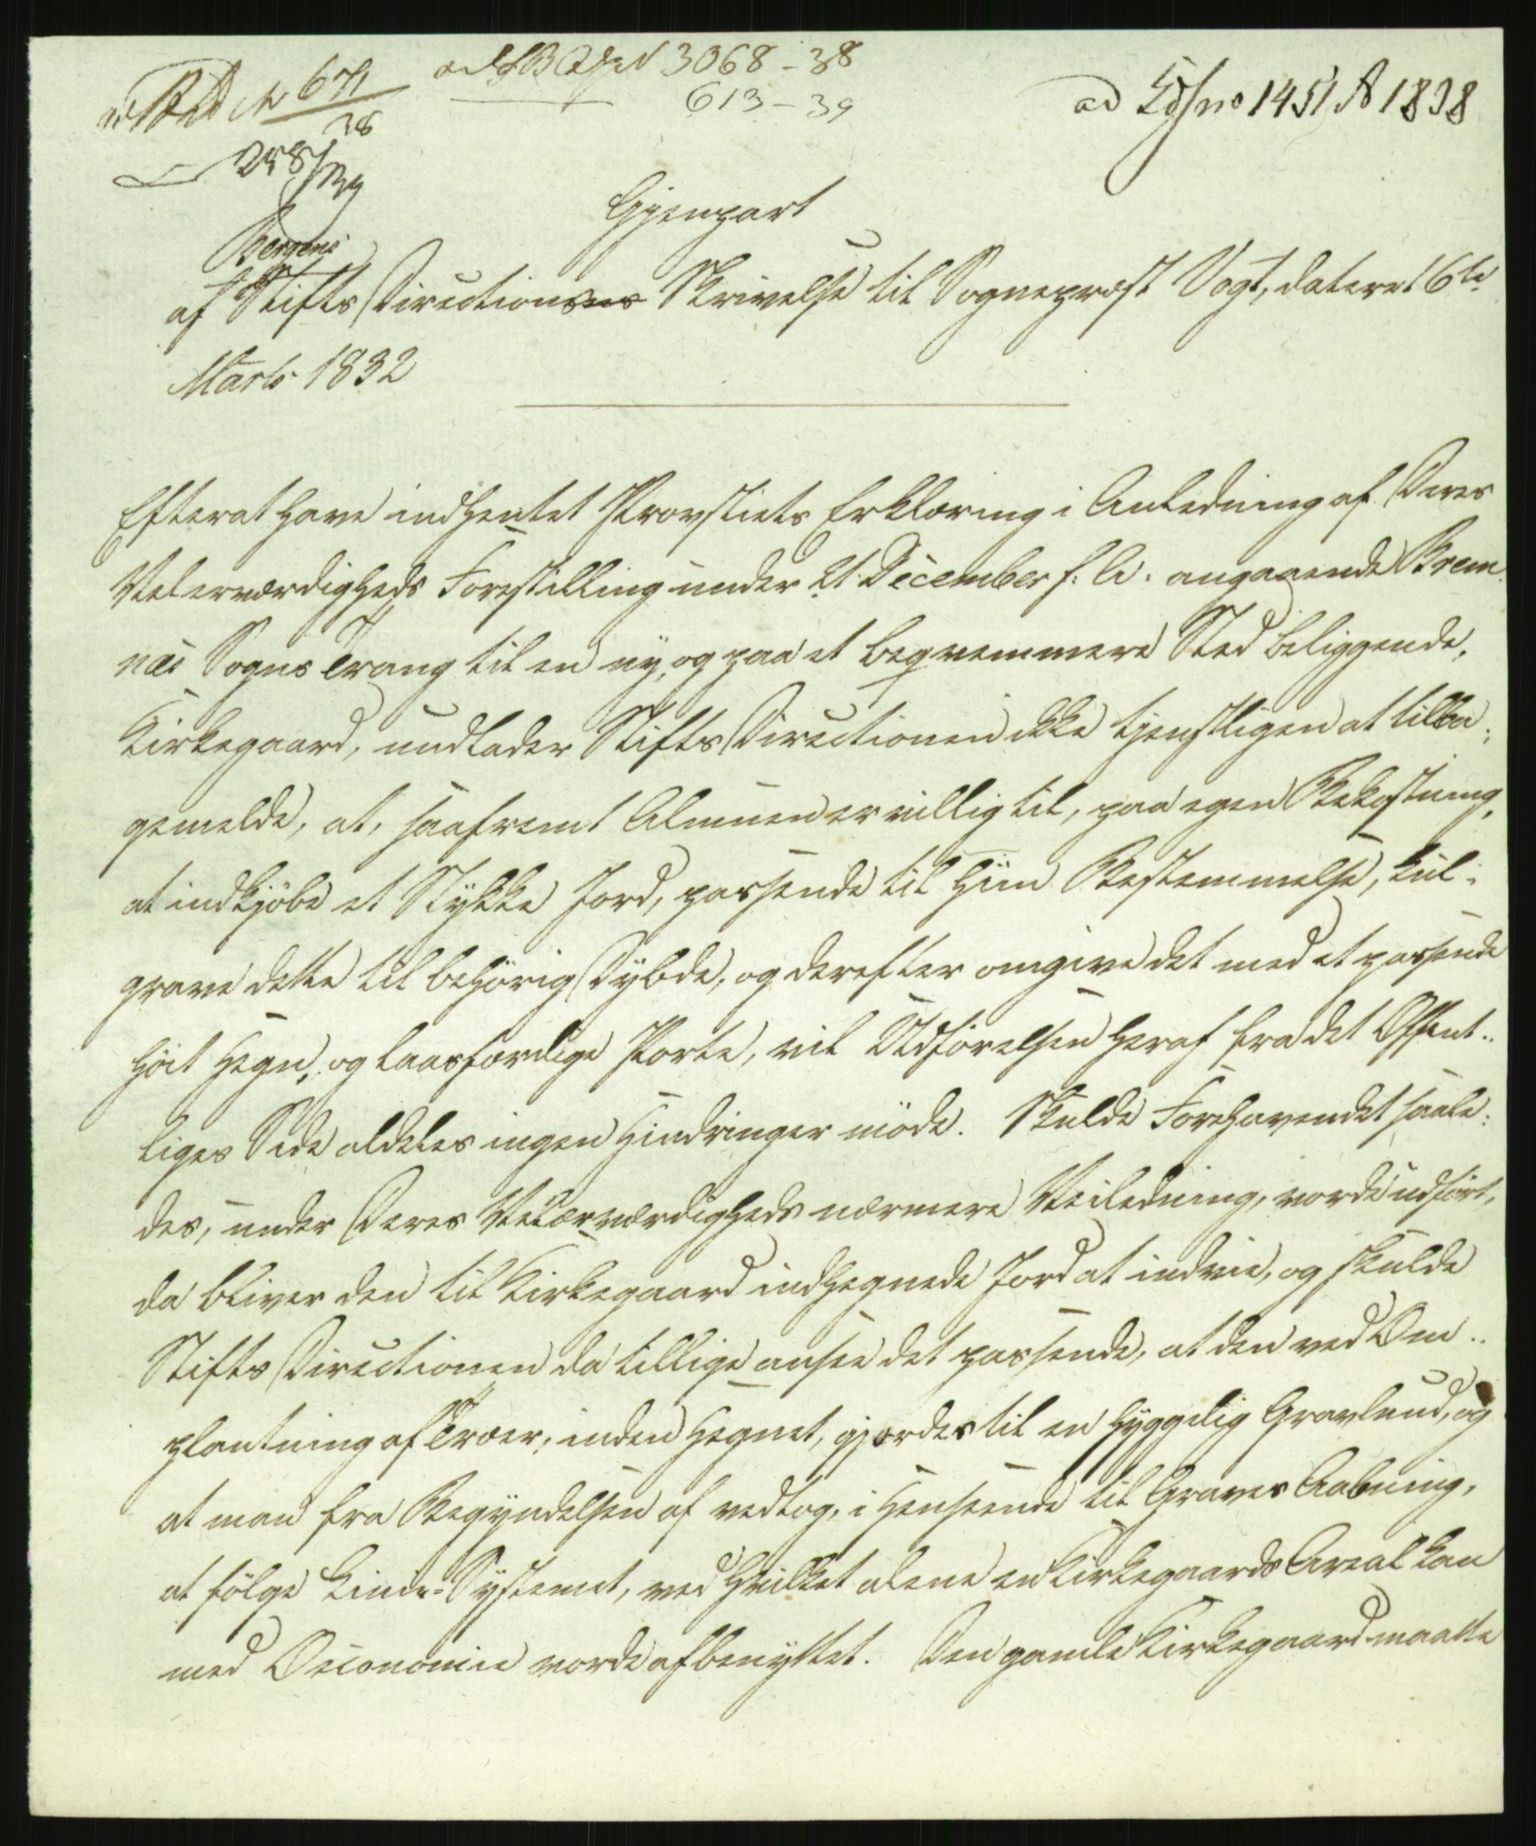 No 671
38
3068 - 38
613 - 39
ad 1451 A 1838
258/39
Gjenpart
Bergens
af Stifts Directionens Skrivelse til Sognepræst Vogt, dateret 6te
Marts 1832
Efterat have indhentet Provstiets Erklæring i Anledning af Deres
Velærværdigheds Forestilling under 21 December f: A: angaaende Brem
næs Sogns Trang til en ny, og paa et beqvemmere Sted beliggende,
Kirkegaard, undlader Stifts Directionen ikke tjenstligen at tilba-
gemelde, at, saafremt Almuen er villig til, paa egen Bekostning,
at indkjöbe et Stykke Jord, passende til hiin Bestemmelse, kul-
grave dette til behörig Dybde, og derefter omgive det med et passende
höit Hegn, og laasfærdige Porte, vil Udförelsen heraf fra det Offent-
liges Side aldeles ingen Hindringer möde. Skulde Forehavendet saale-
des, under Deres Velærværdigheds nærmere Veiledning, vorde udfört,
da bliver den til Kirkegaard indhegnede Jord at indvie, og skulde
Stifts Directionen da tillige ansee det passende, at den ved Om-
plantning af Træer, inden Hegnet, gjordes til en hyggelig Gravlund, og
at man fra Begyndelsen af vedtog, i Henseende til Graves Aabning,
at fölge Linie-Systemet, ved hvilket alene en Kirkegaards Areal kan
med Oeconomie vorde afbenyttet. Den gamle Kirkegaard maatte